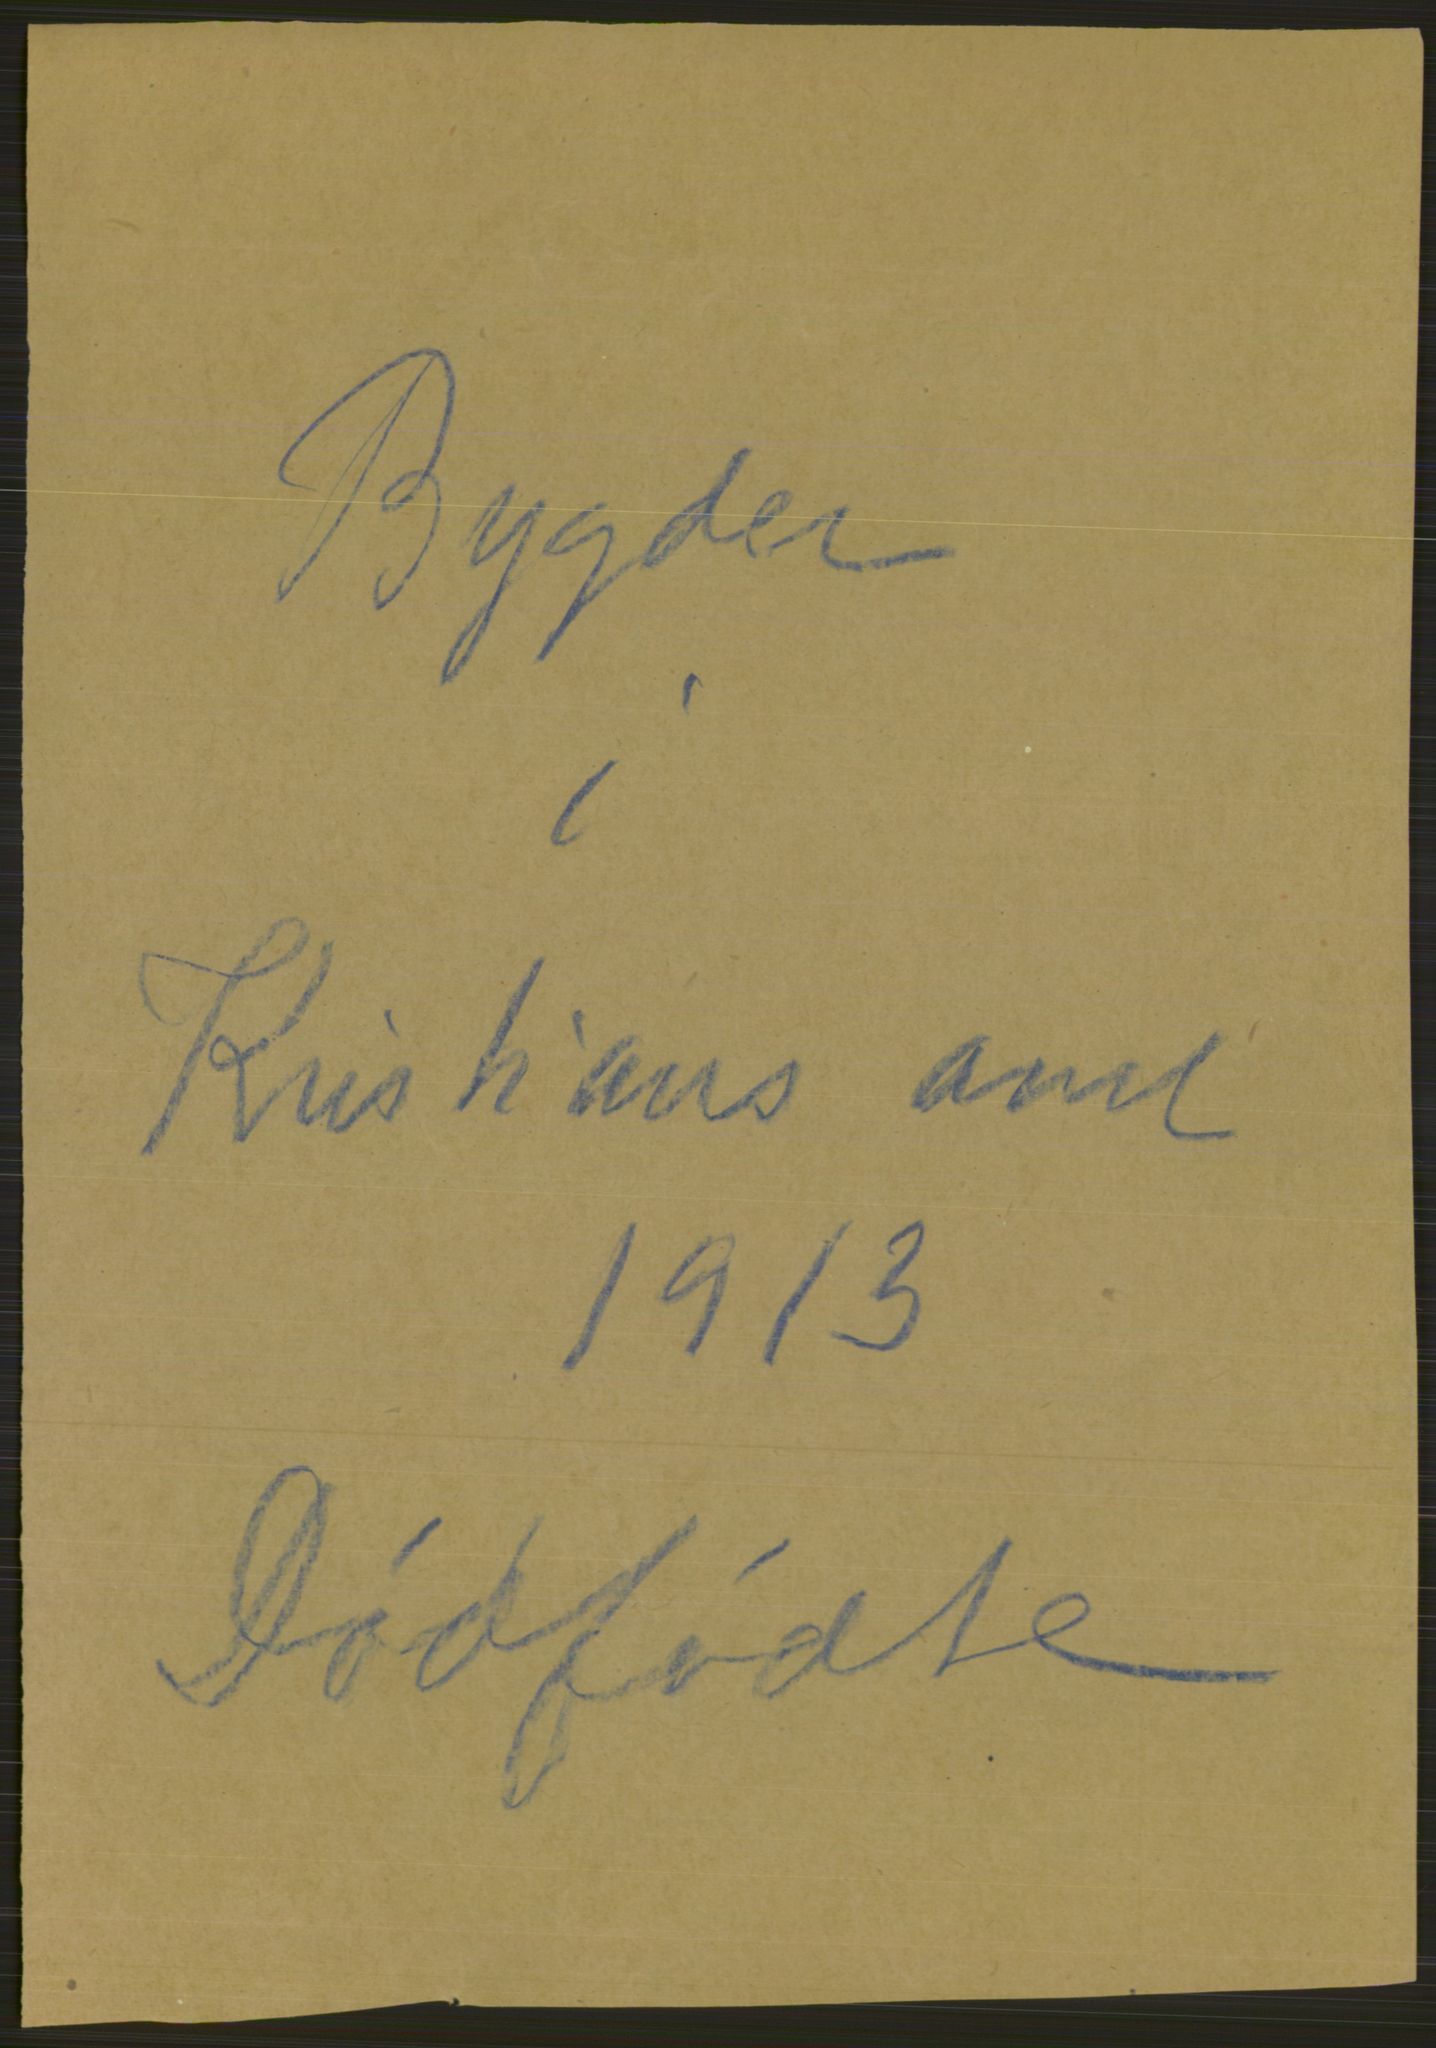 Bygder
i
Kristians amt
1913
Dødfødte